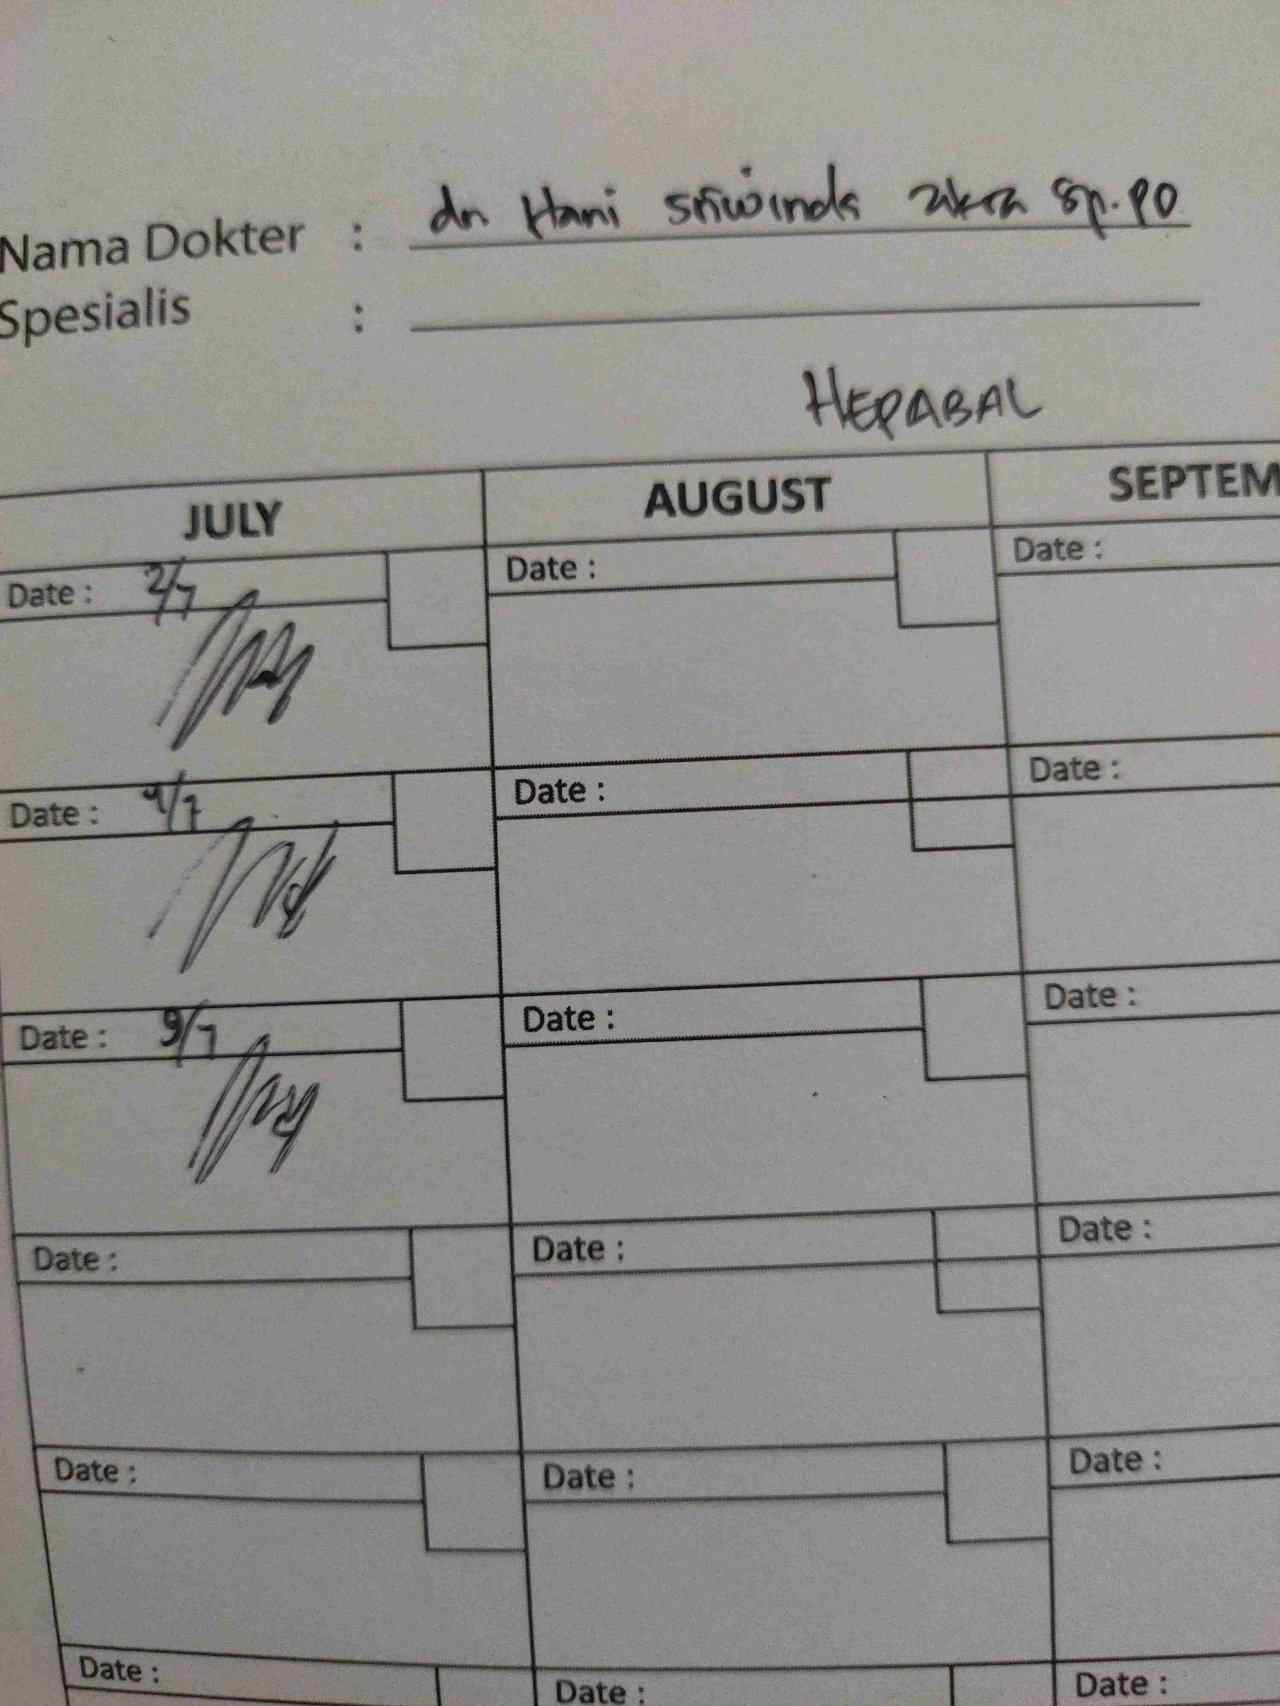 Nama Dokter : dr Hani sriwinda Sp.PD
Spesialis :
HEPABAL
JULY AUGUST SEPTEM
Date : 2/7 Date : Date :
Date : 4/7 Date : Date :
Date : 9/7 Date : Date :
Date : Date : Date :
Date : Date : Date :
Date : Date : Date :